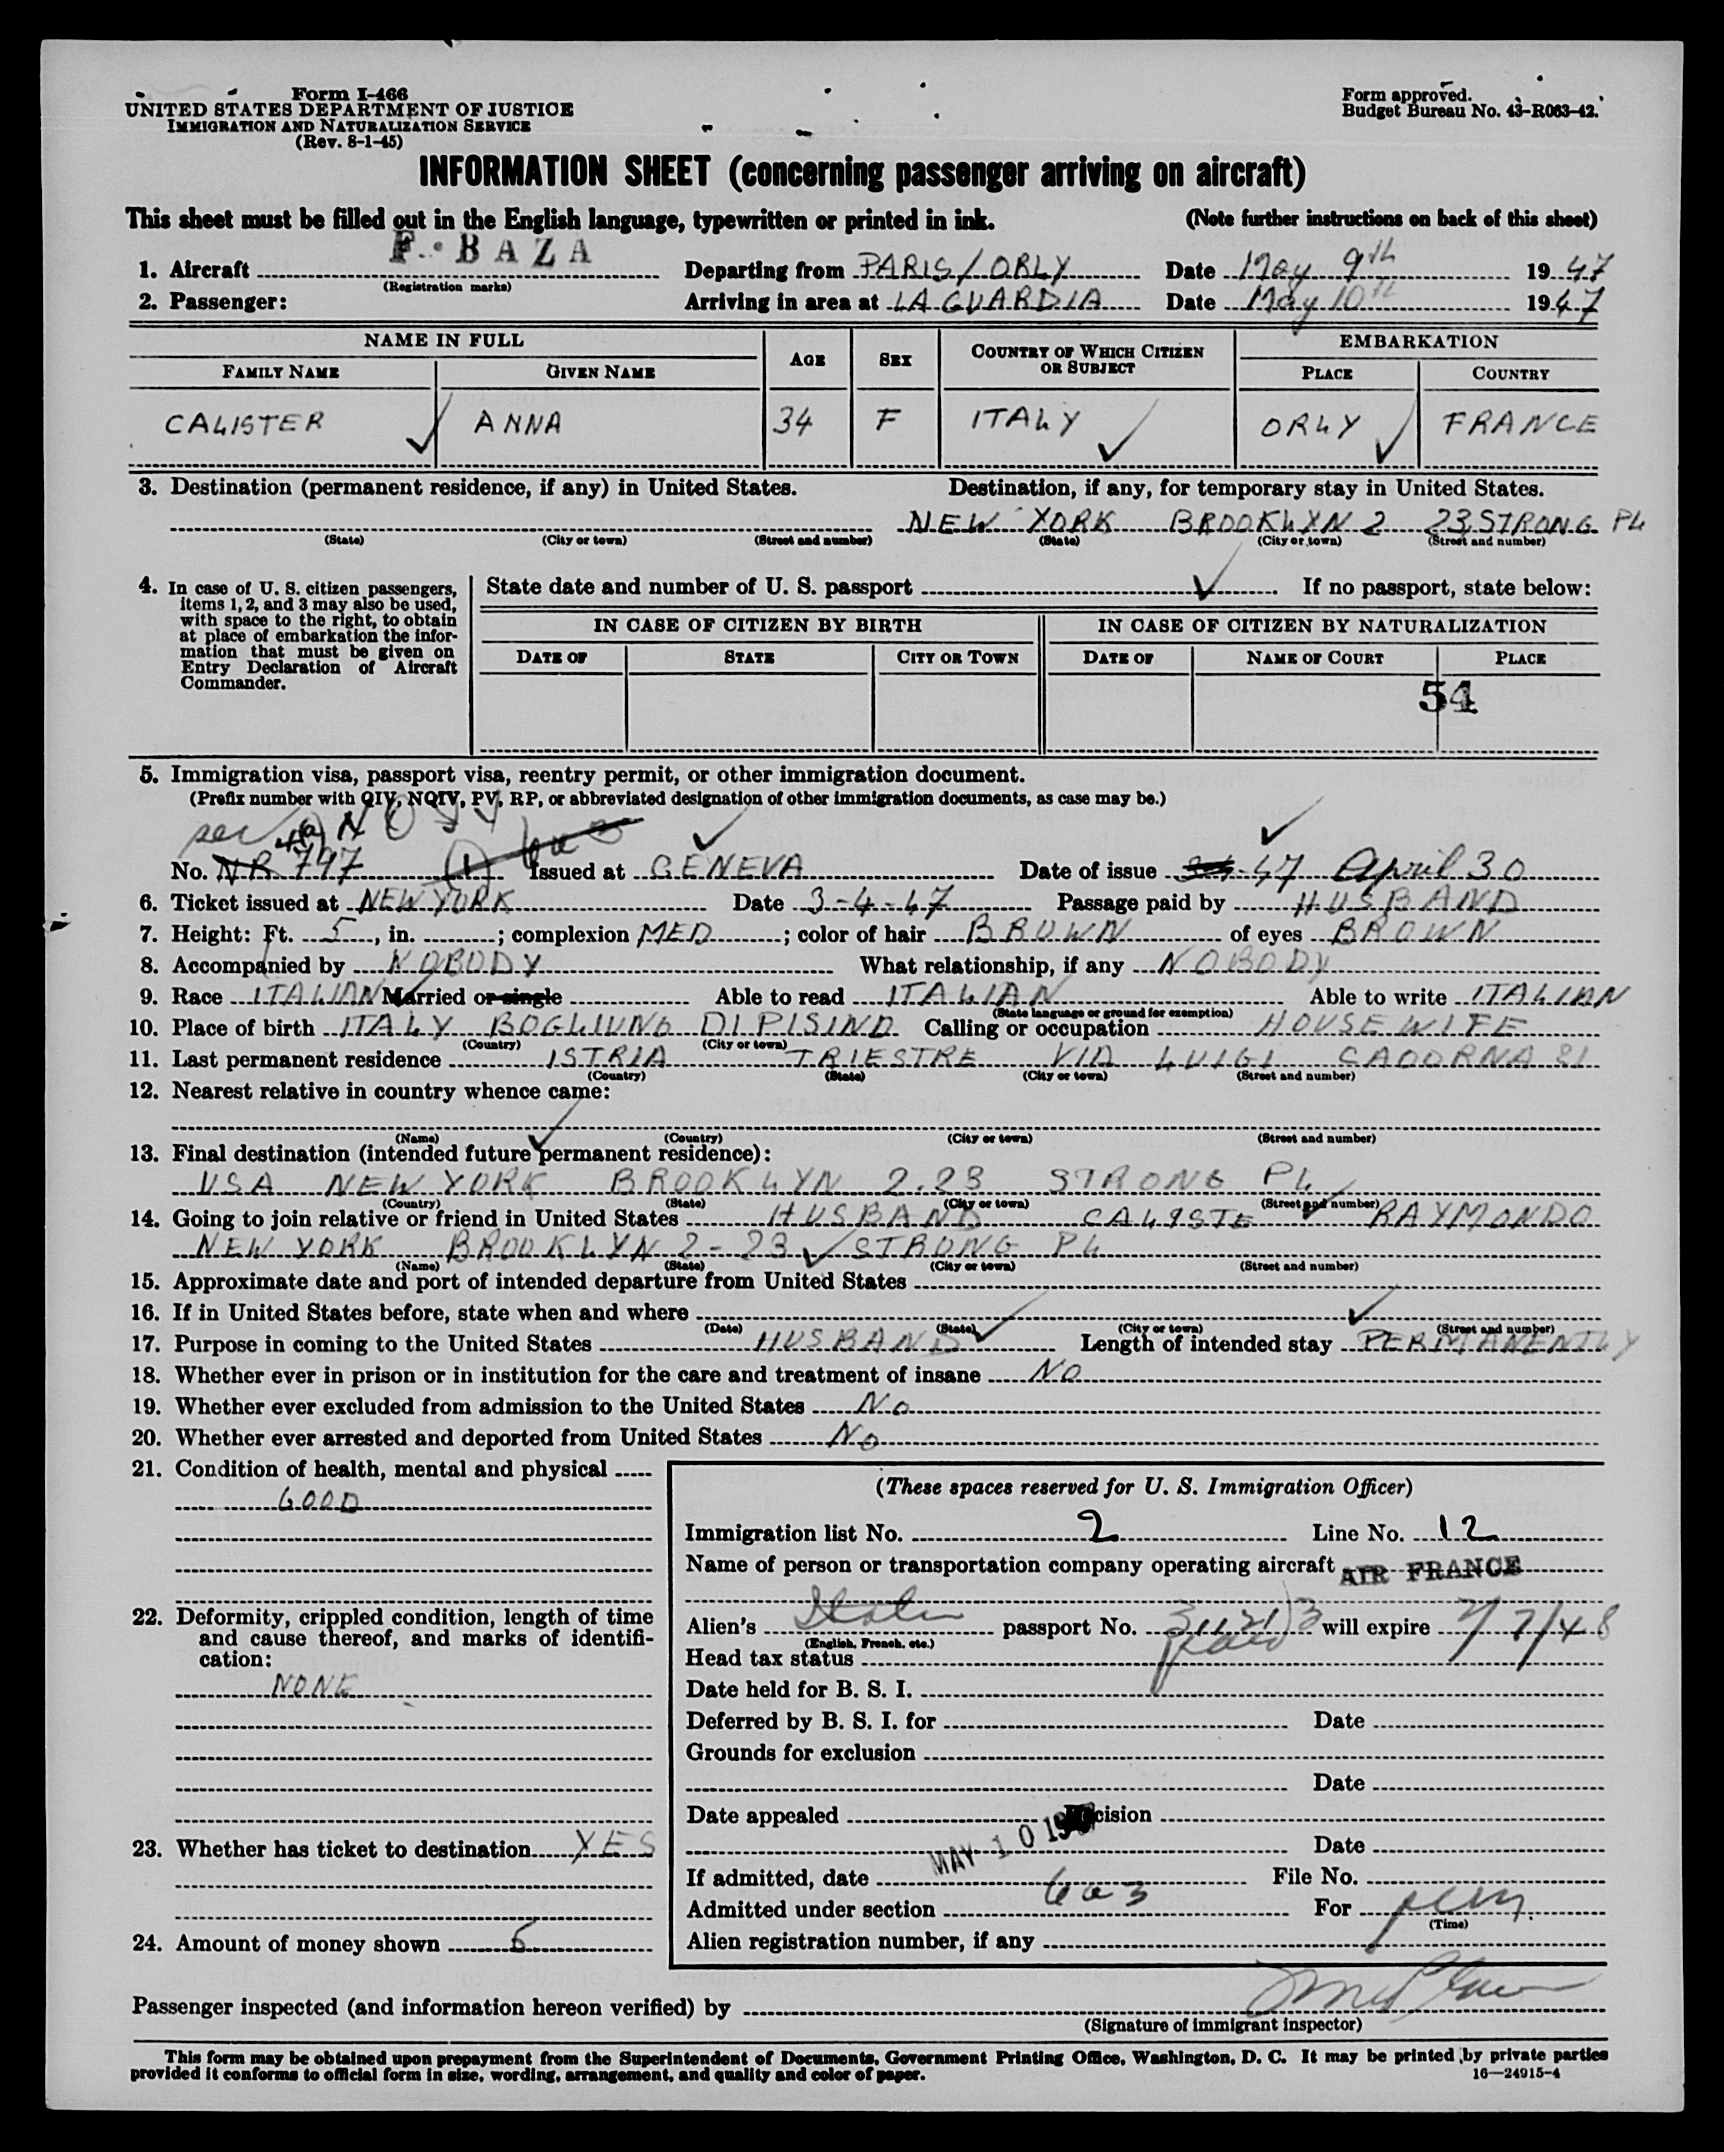 Form I-466
UNITED STATES DEPARTMENT OF JUSTICE
IMMIGRATION AND NATURALIZATION SERVICE
(Rev. 8-1-45)
Form approved.
Budget Bureau No. 43-R063-42.
INFORMATION SHEET (concerning passenger arriving on aircraft)
This sheet must be filled out in the English language, typewritten or printed in ink. (Note further instructions on back of this sheet)
1. Aircraft F. BAZA Departing from PARIS/ORLY Date May 9th 1947
(Registration marks)
2. Passenger: Arriving in area at LA GUARDIA Date May 10th 1947
NAME IN FULL AGE SEX COUNTRY OF WHICH CITIZEN OR SUBJECT EMBARKATION
FAMILY NAME GIVEN NAME PLACE COUNTRY
CALISTER ANNA 34 F ITALY ORLY FRANCE
3. Destination (permanent residence, if any) in United States. Destination, if any, for temporary stay in United States.
NEW YORK BROOKLYN 2 23 STRONG PL
(State) (City or town) (Street and number) (State) (City or town) (Street and number)
4. In case of U. S. citizen passengers, items 1, 2, and 3 may also be used, with space to the right, to obtain at place of embarkation the information that must be given on Entry Declaration of Aircraft Commander.
State date and number of U. S. passport If no passport, state below:
IN CASE OF CITIZEN BY BIRTH IN CASE OF CITIZEN BY NATURALIZATION
DATE OF STATE CITY OR TOWN DATE OF NAME OF COURT PLACE
54
5. Immigration visa, passport visa, reentry permit, or other immigration document.
(Prefix number with QIV, NQIV, PV, RP, or abbreviated designation of other immigration documents, as case may be.)
No. NR 797 Issued at GENEVA Date of issue 47 April 30
6. Ticket issued at NEW YORK Date 3-4-47 Passage paid by HUSBAND
7. Height: Ft. 5, in. ; complexion MED ; color of hair BROWN of eyes BROWN
8. Accompanied by NOBODY What relationship, if any NOBODY
9. Race ITALIAN Married or single Able to read ITALIAN Able to write ITALIAN
(State language or ground for exemption)
10. Place of birth ITALY BOGLIUNO DI PISINO Calling or occupation HOUSEWIFE
(Country) (City or town)
11. Last permanent residence ISTRIA TRIESTRE VIA LUIGI CADORNA 21
(Country) (State) (City or town) (Street and number)
12. Nearest relative in country whence came:
(Name) (Country) (City or town) (Street and number)
13. Final destination (intended future permanent residence):
USA NEW YORK BROOKLYN 2. 23 STRONG PL
(Country) (State) (City or town) (Street and number)
14. Going to join relative or friend in United States HUSBAND CALISTE RAYMONDO
NEW YORK BROOKLYN 2 - 23 STRONG PL
(Name) (State) (City or town) (Street and number)
15. Approximate date and port of intended departure from United States
16. If in United States before, state when and where
(Date) (State) (City or town) (Street and number)
17. Purpose in coming to the United States HUSBAND Length of intended stay PERMANENTLY
18. Whether ever in prison or in institution for the care and treatment of insane NO
19. Whether ever excluded from admission to the United States No
20. Whether ever arrested and deported from United States No
21. Condition of health, mental and physical
GOOD
22. Deformity, crippled condition, length of time and cause thereof, and marks of identification:
NONE
23. Whether has ticket to destination YES
24. Amount of money shown 5
(These spaces reserved for U. S. Immigration Officer)
Immigration list No. 2 Line No. 12
Name of person or transportation company operating aircraft AIR FRANCE
Alien's Italian passport No. will expire 7/7/48
(English, French, etc.)
Head tax status paid
Date held for B. S. I.
Deferred by B. S. I. for Date
Grounds for exclusion
Date
Date appealed Decision
Date
If admitted, date MAY 10 1947 File No.
Admitted under section 6a3 For perm.
(Time)
Alien registration number, if any
Passenger inspected (and information hereon verified) by
(Signature of immigrant inspector)
This form may be obtained upon prepayment from the Superintendent of Documents, Government Printing Office, Washington, D. C. It may be printed by private parties
provided it conforms to official form in size, wording, arrangement, and quality and color of paper.
16—24915-4